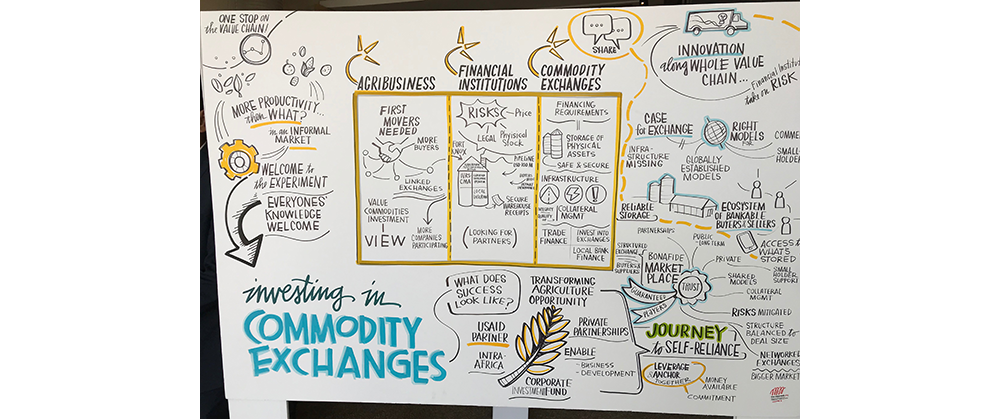 ONE STOP on
the VALUE CHAIN!
MORE PRODUCTIVITY...
then WHAT?
in an INFORMAL
MARKET
WELCOME to
the EXPERIMENT
EVERYONES'
KNOWLEDGE
WELCOME
investing in
COMMODITY
EXCHANGES
AGRIBUSINESS
FIRST
MOVERS
NEEDED
MORE
BUYERS
LINKED
EXCHANGES
VALUE
COMMODITIES
INVESTMENT
VIEW
MORE
COMPANIES
PARTICIPATING
FINANCIAL
INSTITUTIONS
RISKS
Price
LEGAL
Physical
Stock
FORT
KNOX
PIPELINE
SECURE
WAREHOUSE
RECEIPTS
(LOOKING for
PARTNERS)
COMMODITY
EXCHANGES
FINANCING
REQUIREMENTS
STORAGE OF
PHYSICAL
ASSETS
SAFE & SECURE
INFRASTRUCTURE
COLLATERAL
MGMT
TRADE
FINANCE
INVEST INTO
EXCHANGES
LOCAL BANK
FINANCE
WHAT DOES
SUCCESS
LOOK LIKE?
TRANSFORMING
AGRICULTURE
OPPORTUNITY
USAID
PARTNER
INTRA-
AFRICA
PRIVATE
PARTNERSHIPS
ENABLE
- BUSINESS
- DEVELOPMENT
CORPORATE
INVESTMENT FUND
SHARE
INNOVATION
along WHOLE VALUE
CHAIN...
Financial Instituti
take on RISK
CASE
for EXCHANGE
INFRA-
STRUCTURE
MISSING
RIGHT
MODELS
for
COMME
SMALL-
HOLDER
GLOBALLY
ESTABLISHED
MODELS
RELIABLE
STORAGE
ECOSYSTEM
OF BANKABLE
BUYERS & SELLERS
ACCESS to
WHAT'S
STORED
PARTNERSHIPS
PUBLIC
LONG TERM
PRIVATE
STRUCTURED
EXCHANGE
BUYERS &
SUPPLIERS
BONAFIDE
MARKET
PLACE
TRUST
GUARANTEED
PLAYERS
SHARED
MODELS
SMALL
HOLDER
SUPPORT
COLLATERAL
MGMT
RISKS MITIGATED
STRUCTURE
BALANCED to
DEAL SIZE
NETWORKED
EXCHANGES
BIGGER MARKET
JOURNEY
to SELF-RELIANCE
LEVERAGE
& ANCHOR
TOGETHER
MONEY
AVAILABLE
COMMITMENT